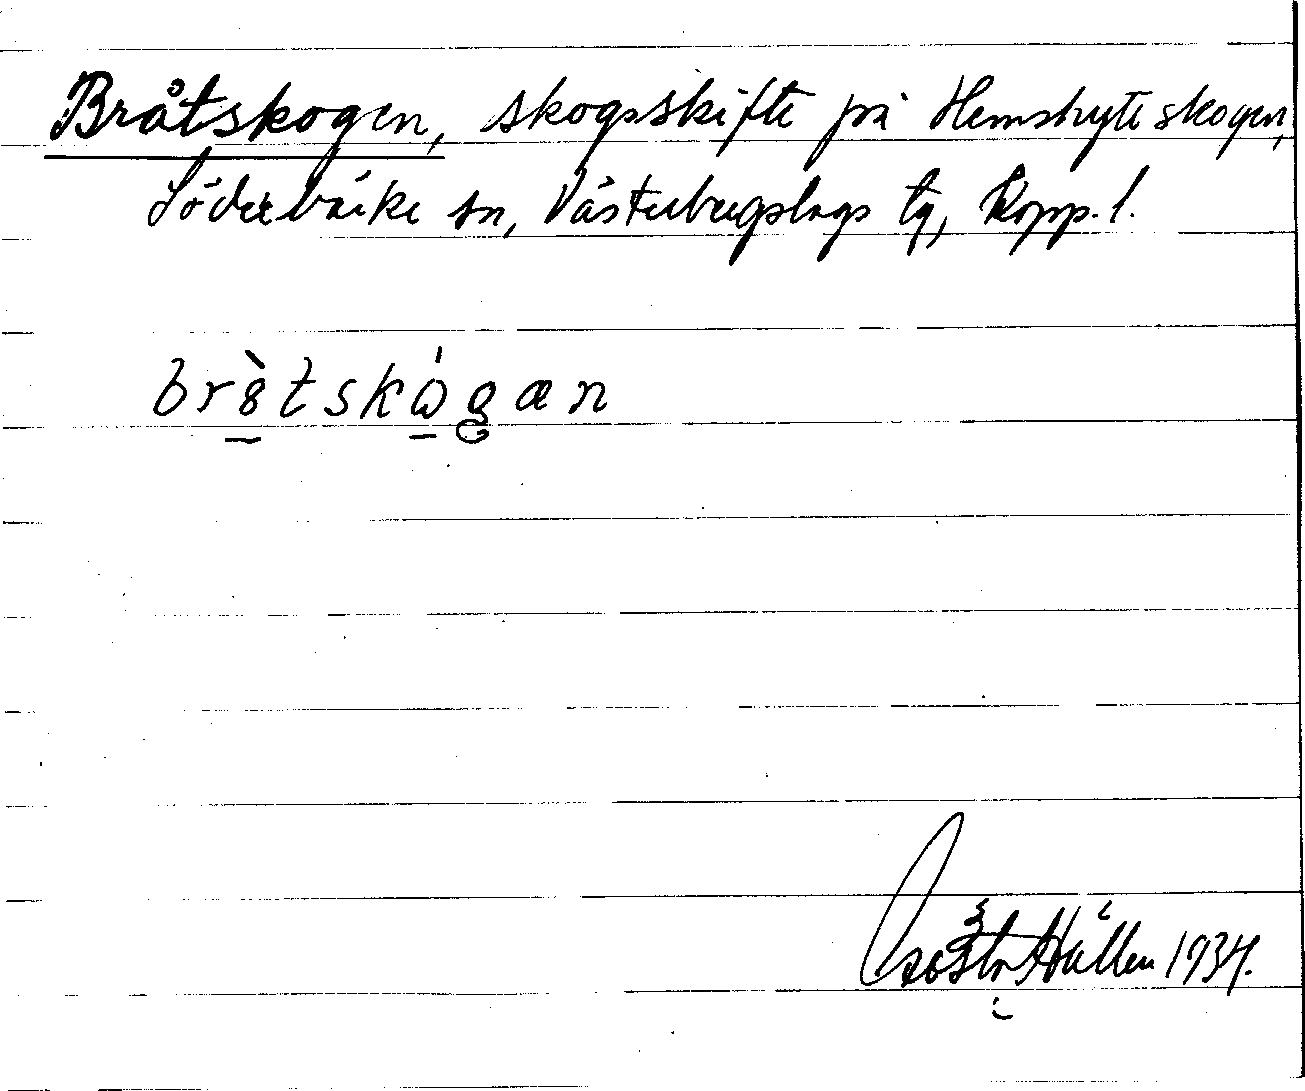 Bråtskogen, skogsskifte på Hemshyteskogen,
Söderbärke sn, Västerbergslags tg, Kopp. l.
br8̀tskω̍gæn
Gösta Hallen 1934.